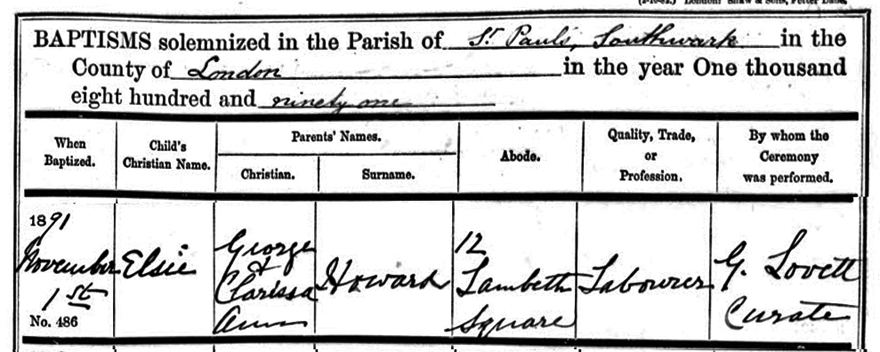 BAPTISMS solemnized in the Parish of St. Paul's, Southwark in the
County of London in the year One thousand
eight hundred and ninety one
When Baptized.
Child's Christian Name.
Parents' Names.
Christian.
Surname.
Abode.
Quality, Trade, or Profession.
By whom the Ceremony was performed.
1891
November
1st
No. 486
Elsie
George
&
Clarissa
Ann
Howard
12
Lambeth
Square
Labourer
G. Lovett
Curate